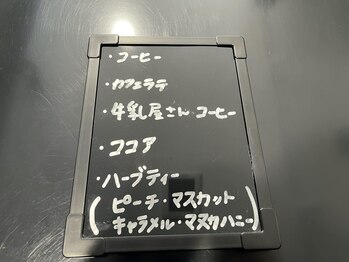 ・コーヒー
・カフェラテ
・牛乳屋さんコーヒー
・ココア
・ハーブティー
(ピーチ・マスカット
キャラメル・マヌカハニー)